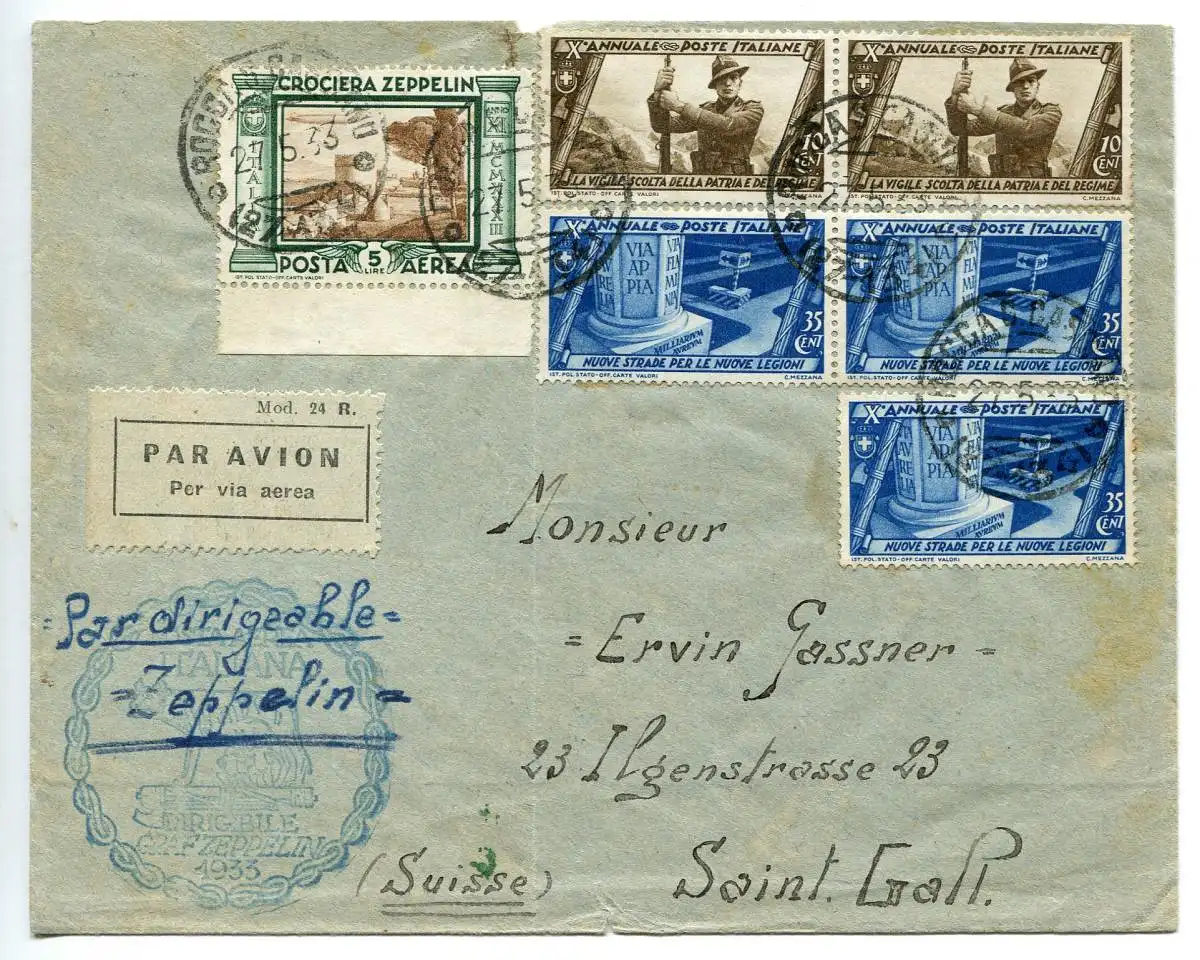 CROCIERA ZEPPELIN
ANNO
XI
ITALIA
MCM
XXX
III
POSTA 5 LIRE AEREA
IST. POL. STATO-OFF. CARTE VALORI
2 .5.33
27.5
X° ANNUALE POSTE ITALIANE
10
CENT
LA VIGILE SCOLTA DELLA PATRIA E DEL REGIME
IST. POL. STATO-OFF. CARTE VALORI C. MEZZANA
X° ANNUALE POSTE ITALIANE
10
CENT
LA VIGILE SCOLTA DELLA PATRIA E DEL REGIME
IST. POL. STATO-OFF. CARTE VALORI C. MEZZANA
X° ANNUALE POSTE ITALIANE
VIA AVRELIA
VIA APPIA
VIA FLAMINIA
MILLIARIVM AVREVM
35
CENT
NUOVE STRADE PER LE NUOVE LEGIONI
IST. POL. STATO-OFF. CARTE VALORI C. MEZZANA
X° ANNUALE POSTE ITALIANE
VIA APPIA
MILLIARIVM AVREVM
35
CENT
NUOVE STRADE PER LE NUOVE LEGIONI
IST. POL. STATO-OFF. CARTE VALORI C. MEZZANA
27.5.33
X° ANNUALE POSTE ITALIANE
VIA AVRELIA
VIA APPIA
MILLIARIVM AVREVM
35
CENT
NUOVE STRADE PER LE NUOVE LEGIONI
IST. POL. STATO-OFF. CARTE VALORI C. MEZZANA
Mod. 24 R.
PAR AVION
Per via aerea
=Par dirigeable=
=Zeppelin=
ITALIANA
DIRIGIBILE
GRAF ZEPPELIN
1933
Monsieur
=Ervin Gassner=
23 Ilgenstrasse 23
(Suisse) Saint. Gall.